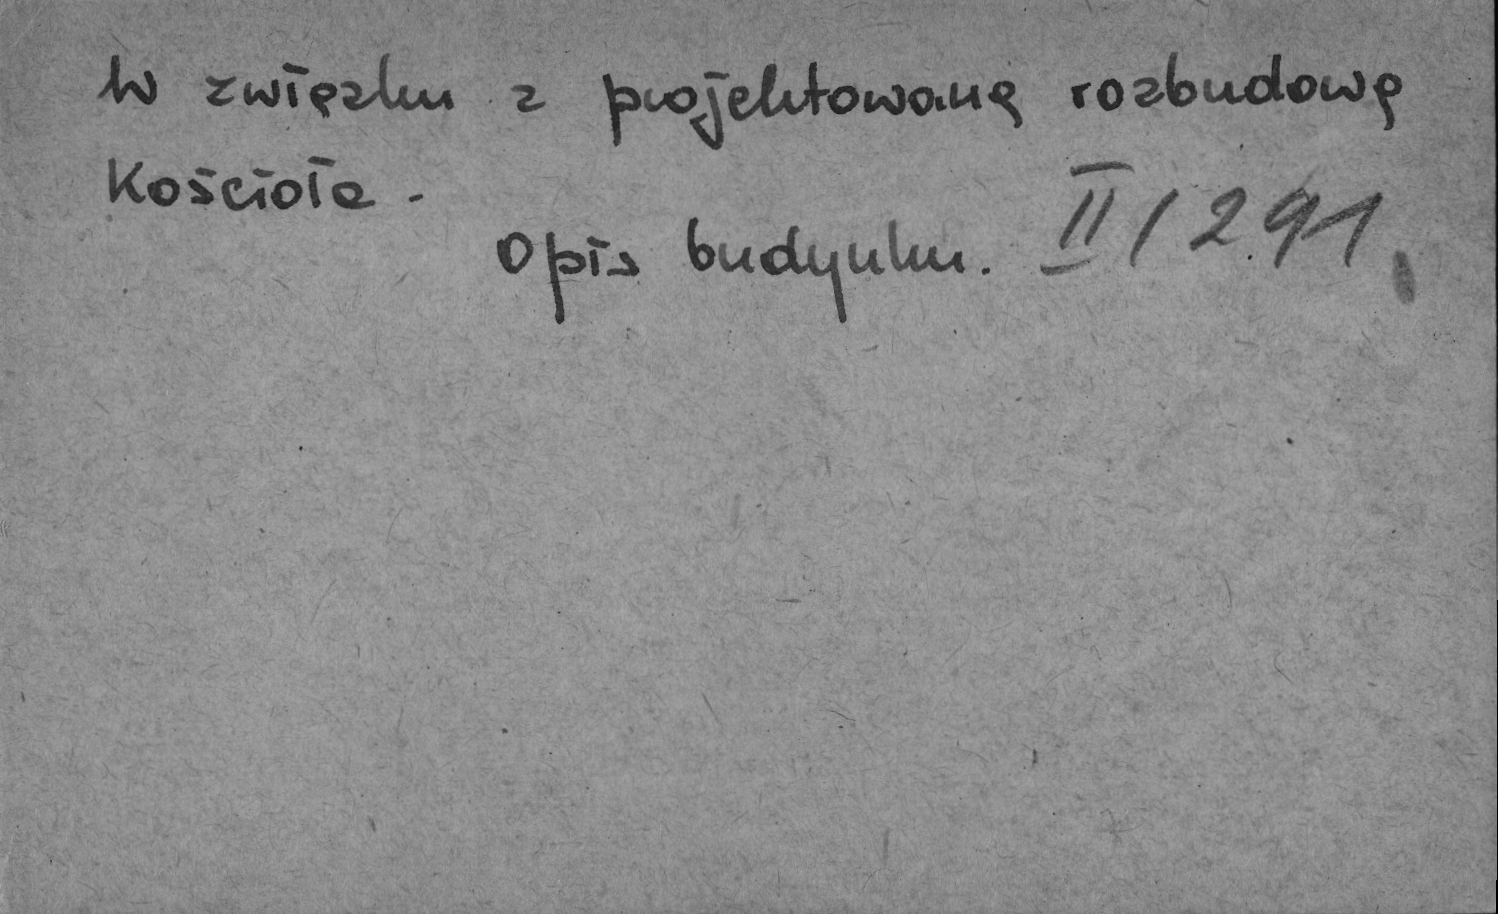 W związku z projektowaną rozbudową
Kościoła -
Opis budynku. II/291